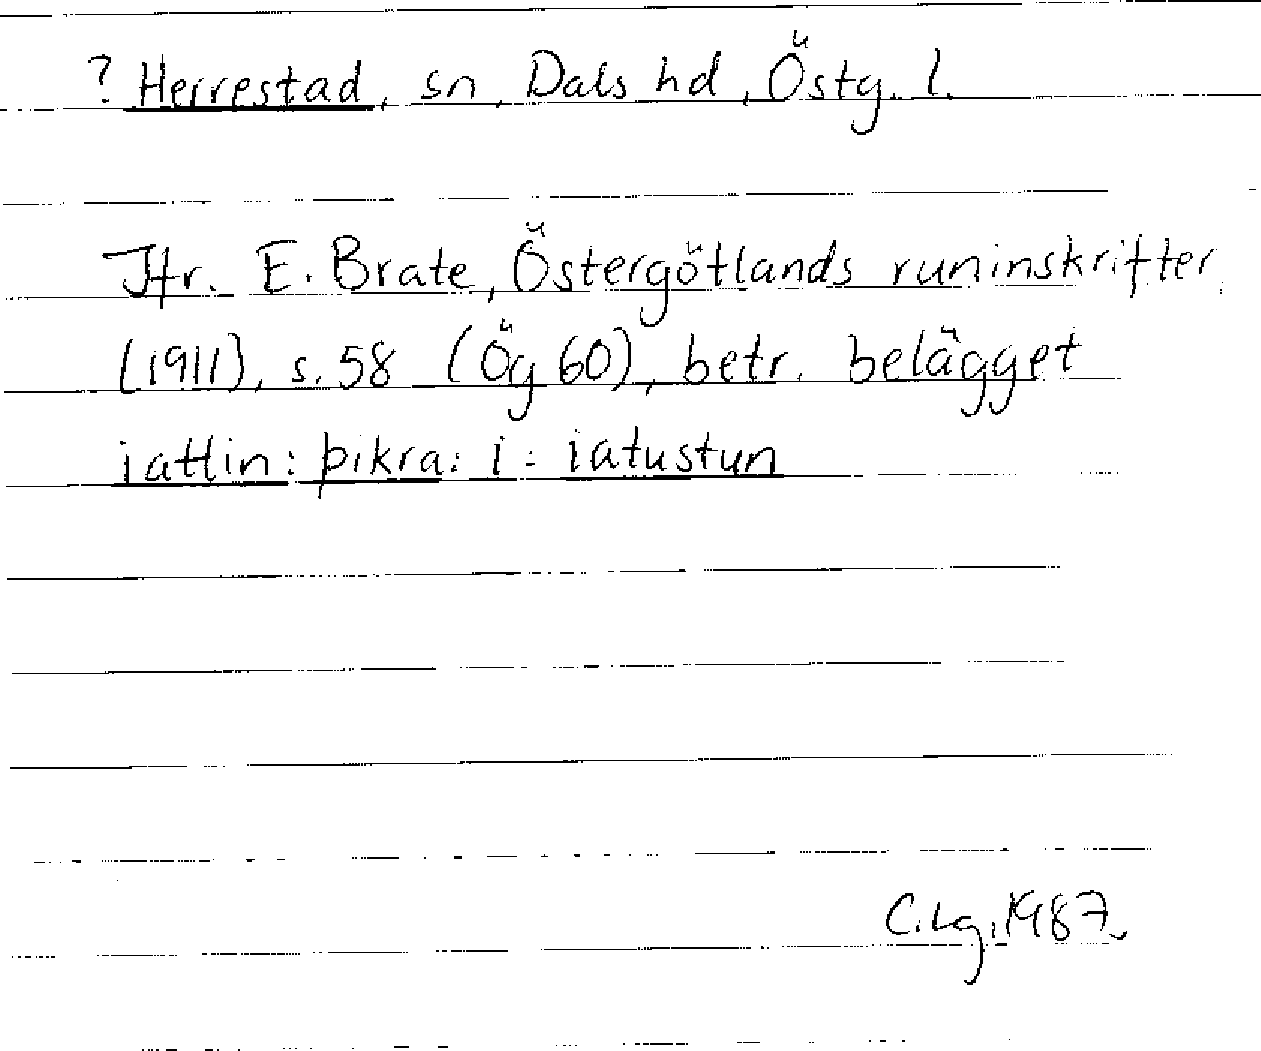 ? Herrestad, sn, Dals hd, Östg. l.
Jfr. E. Brate, Östergötlands runinskrifter
(1911), s. 58 (Ög 60), betr. belägget
iattin : þikra : i : iatustun
C.Lg. 1987